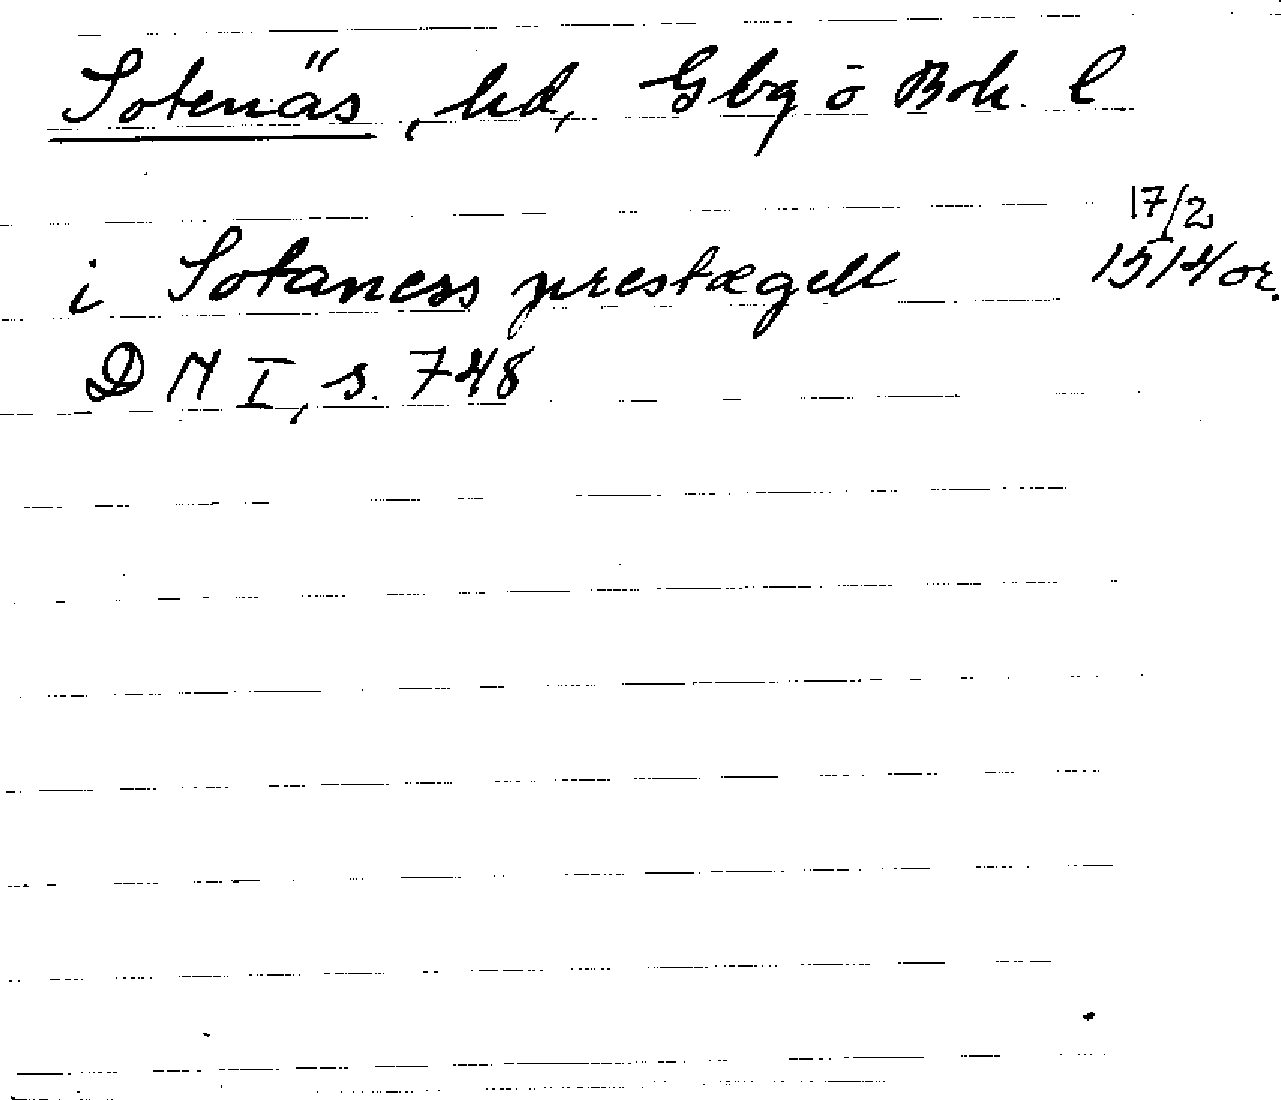 Sotenäs, hd, Gbg o Boh. l
17/2
i Sotaness prestægell 1514 or.
DN I, s. 748